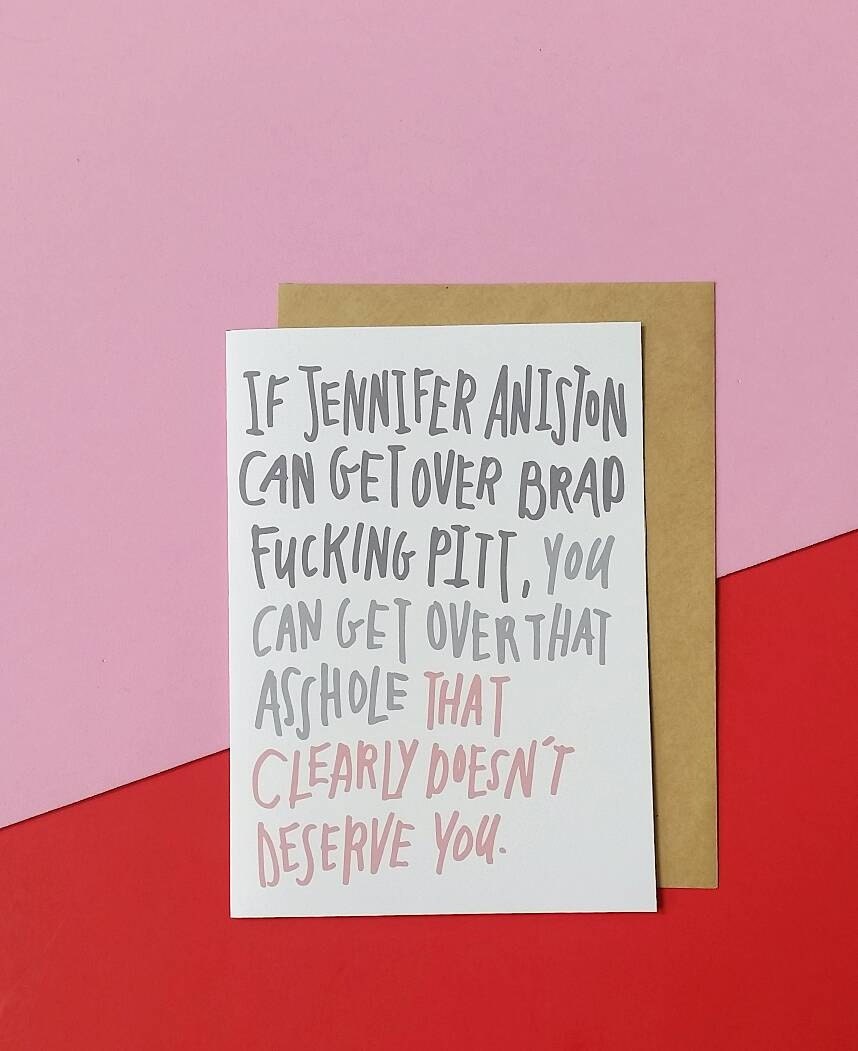 IF JENNIFER ANISTON
CAN GET OVER BRAD
FUCKING PITT, YOU
CAN GET OVER THAT
ASSHOLE THAT
CLEARLY DOESN'T
DESERVE YOU.